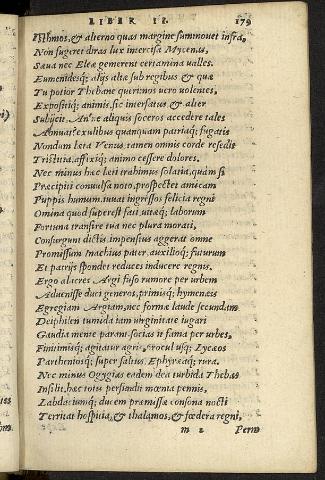 LIBER II. 179
Isthmos, & alterno quas margine summouet infra,
Non fugeret diras lux intercisa Mycenas,
Sæua nec Eleæ gemerent certamina valles.
Eumenidesq; alijs aliæ sub regibus & quæ
Tu potior Thebane querimos vero volentes,
Expositiq; animis. sic intersatus & alter
Subijcit. An'ne aliquis soceros accedere tales
Abnuat exulibus quanquam patriaq; fugatis
Nondum læta Venus, tamen omnis corde resedit
Tristitia, affixiq; animo cessere dolores.
Nec minus hæc læti trahimus solatia, quàm si
Præcipiti conuulsa noto, prospectet amicam
Puppis humum, iuuat ingressos felicia regni
Omina quod superest fati, vitæq; laborum
Fortuna transire tua nec plura morati,
Consurgunt dictis, impensius aggerat omne
Promissum Inachius pater, auxilioq; futurum
Et patrijs spondet reduces inducere regnis.
Ergo alacres Argi fuso rumore per urbem
Aduenisse duci generos, primisq; hymenæis
Egregiam Argiam, nec formæ laude secundam
Deiphilen tumida iam virginitate iugari
Gaudia mente parant. socias it fama per urbes,
Finitimisq; agitatur agris, procul usq; Lycæos
Partheniosq; super saltus, Ephyræaq; rura.
Nec minus Ogygias eadem dea turbida Thebas
Insilit, hæc totis perfundit mœnia pennis,
Labdaciumq; ducem præmissæ consona nocti
Territat hospitia, & thalamos, & fœdera regni,
m 2 Perm